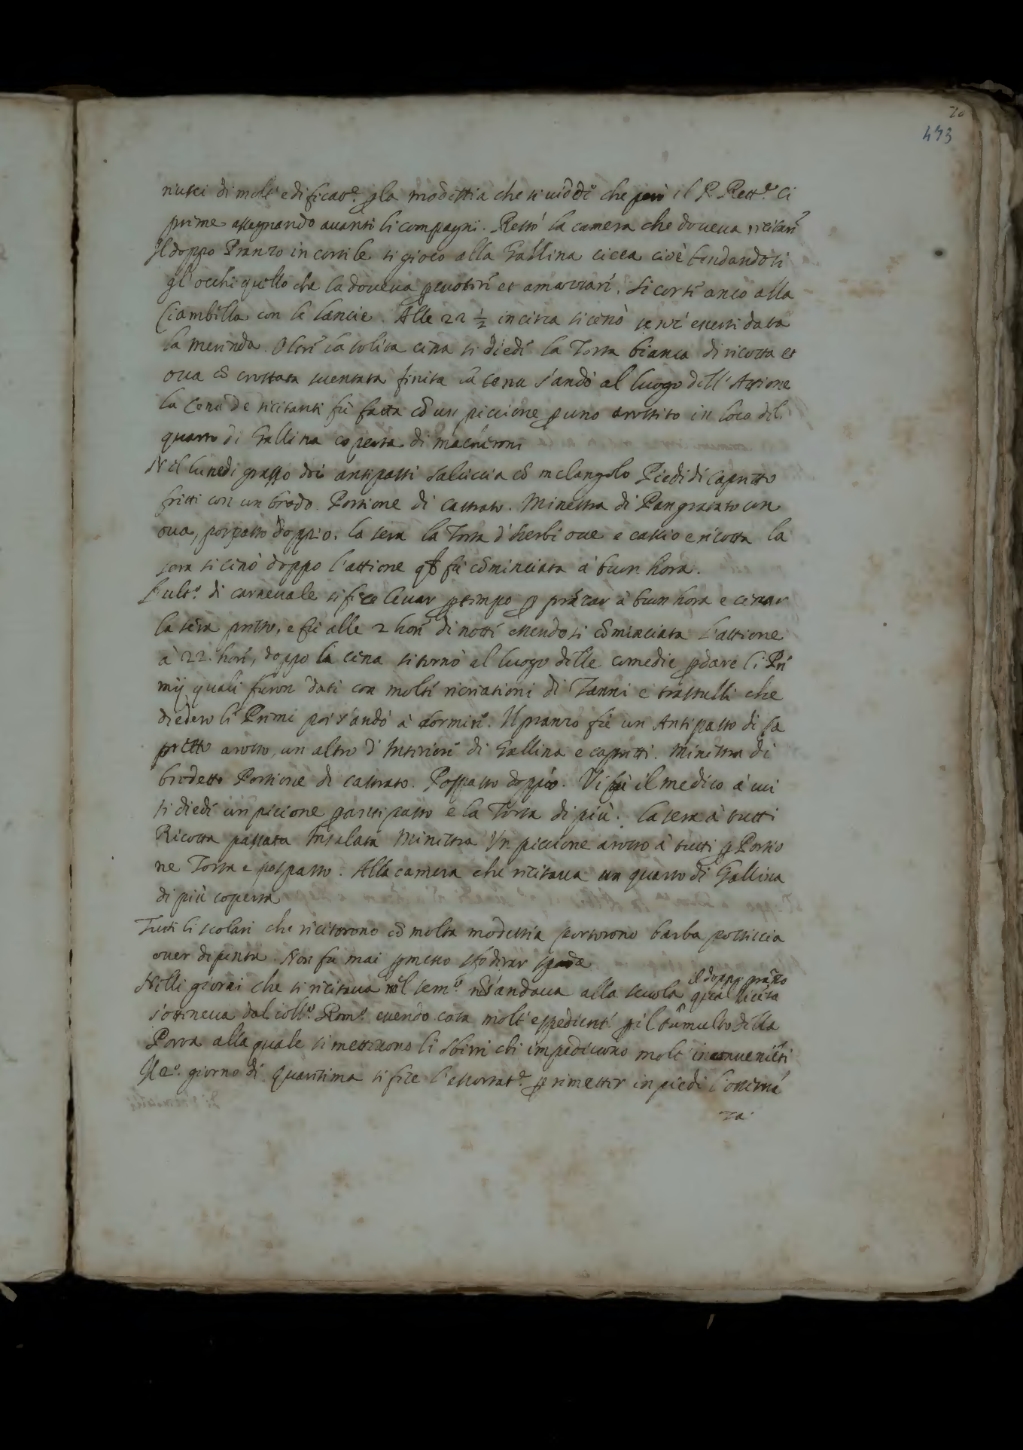 20
473
riuscì di molt' edificat.e p la modestia che si vidde che però il P. Rett.e li
prime assegnando avanti li compagni. Restò la camera che doveva recitare
Il doppo Pranzo in cortile si giocò alla Gallina cieca cioè bendandosi
gl'occhi quello che la doveva percotere et amazzare. Si corse anco alla
Ciambella con le lancie. Alle 22 ½ incirca si cenò
la merenda. Oltre la solita cena si diede la Torta bianca di ricotta et
ova cõ crostata sventata finita la cena s'andò al luogo dell'Attione
la Cena de recitanti fu fatta cõ un piccione p uno arrostito in loco del
quarto di Gallina coperta di maccheroni
Nel lunedi grasso doi antipasti salsiccia cõ melangolo Piedi di capretto
fritti con un brodo Portione di castrato. Minestra di Pangratato con
ova, pospasto doppio. la sera la Torta d'herbe ove e cascio e ricotta la
sera si cenò doppo l'attione che fu cõminciata à buon hora.
L'ult.o di carnevale si fece levar p tempo p pranzar à buon hora e cenar
la sera presto, e fu alle 2 hore di notte essendosi cõminciata l'attione
à 22 hore, doppo la cena si tornò al luogo delle comedie p dare li Pre
mij quali furon dati con molte ricreationi di Zanni e trastulli che
diedero li Premi poi s'andò à dormire. Il pranzo fu un Antipasto di ca
pretto arrosto, un altro d'Interiori di Gallina e capretti. Minestra di
brodetto Portione di castrato. Pospasto doppio. Vi fu il medico à cui
si diede un piccione p antipasto e la Torta di più. la sera à tutti
Ricotta passata Insalata Minestra Un piccione arrosto à tutti p Portio
ne Torta e pospasto. Alla camera che recitava un quarto di Gallina
di più coperta
Tutti li scolari che recitorono cõ molta modestia portorono barba posticcia
over dipinta. Non fu mai p messo sfodrar spada
Nelli giorni che si recitava nel sem.o nõ s'andava alla scuola il doppo pranzo
s'otteneva dal coll.o Rom.o essendo cosa molt'espediente p il tumulto della
Porta alla quale si mettevono li sbirri che impedivono molti inconvenienti
Il 2.o giorno di Quaresima si fece l'essortat.e p rimetter in piedi l'osserva
za